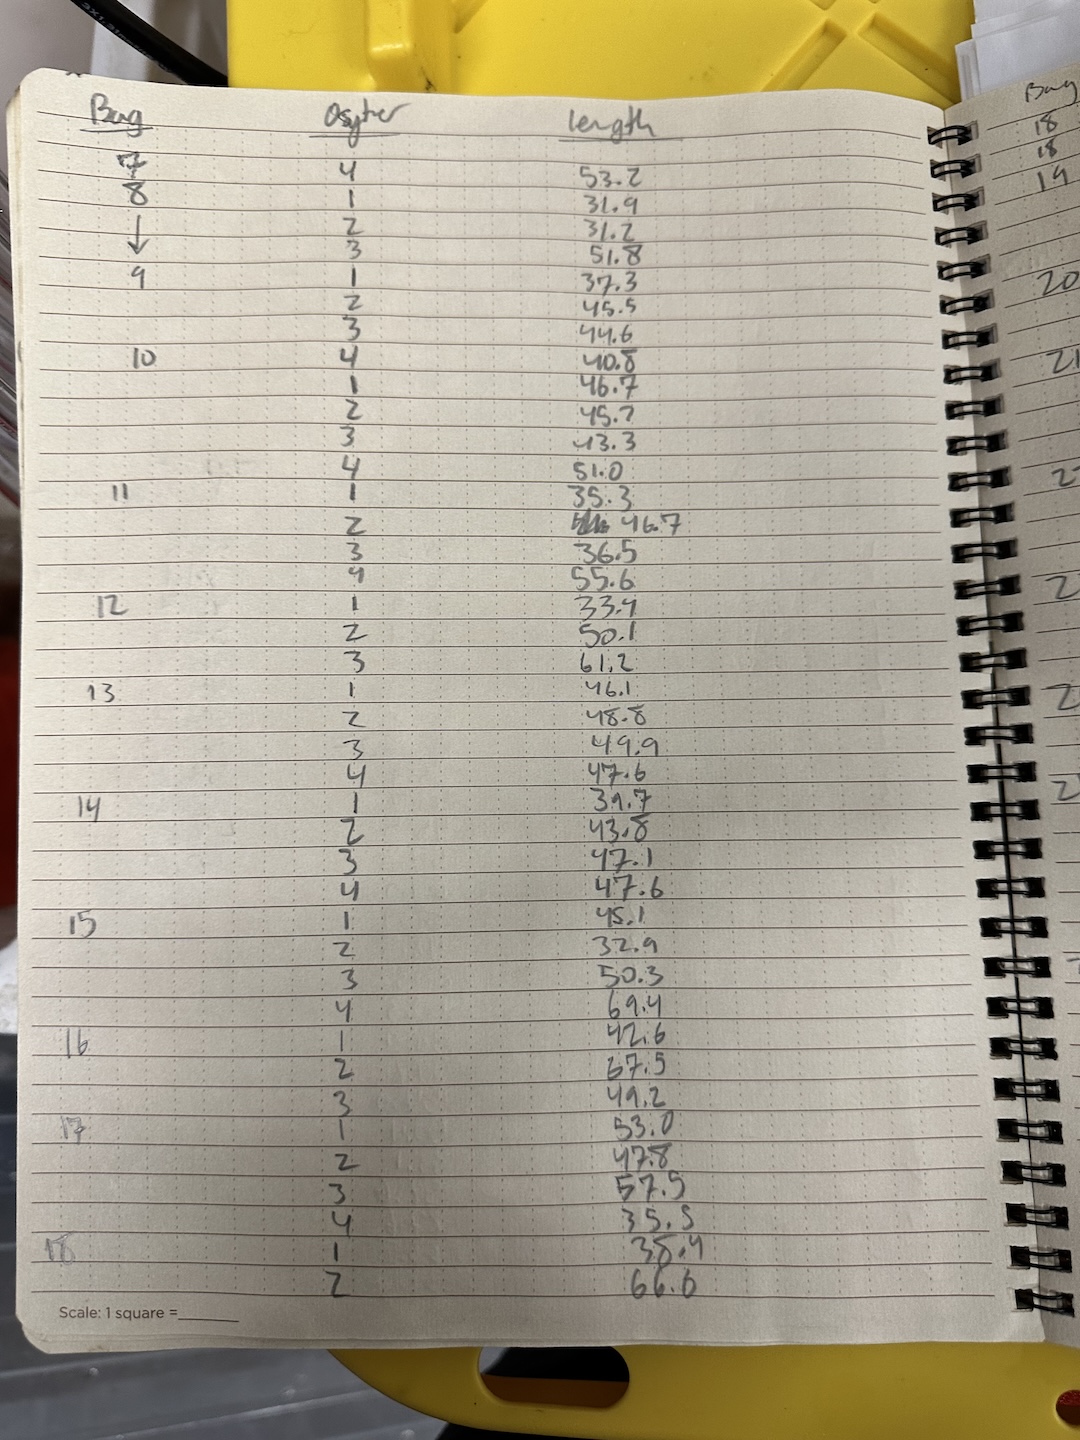 Bag Osyter length
7 4 53.2
8 1 31.9
↓ 2 31.2
3 51.8
9 1 37.3
2 45.5
3 44.6
10 4 40.8
1 46.7
2 45.2
3 43.3
4 51.0
11 1 35.3
2 46.7
3 36.5
4 55.6
12 1 33.4
2 50.1
3 61.2
13 1 46.1
2 48.8
3 49.9
4 47.6
14 1 39.7
2 43.8
3 47.1
4 47.6
15 1 45.1
2 32.9
3 50.3
4 69.4
16 1 42.6
2 67.5
3 49.2
17 1 53.0
2 47.8
3 57.5
4 35.5
18 1 38.4
2 66.6
Scale: 1 square =
Bag
18
18
19
20
21